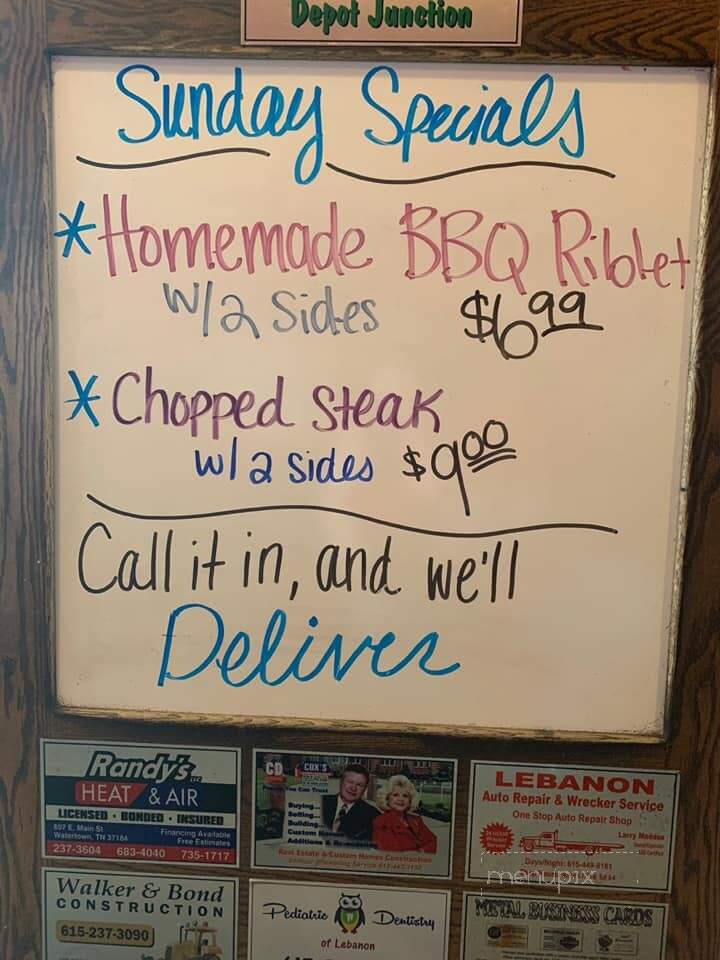 Depot Junction
Sunday Specials
* Homemade BBQ Riblet
w/2 Sides $6.99
* Chopped Steak
w/2 sides $9.00
Call it in, and we'll
Deliver
Randy's LLC
HEAT & AIR
LICENSED • BONDED • INSURED
607 E. Main St
Watertown, TN 37184
Financing Available
Free Estimates
237-3604 683-4040 735-1717
CD COX'S
You Can Trust
Buying...
Selling...
Building...
Custom Homes
Additions & Remodeling
Real Estate & Custom Homes Construction
LEBANON
Auto Repair & Wrecker Service
One Stop Auto Repair Shop
Larry Maddox
Day/Night: 615-449-8161
menupix
Walker & Bond
CONSTRUCTION
615-237-3090
Pediatric Dentistry
of Lebanon
METAL BUSINESS CARDS